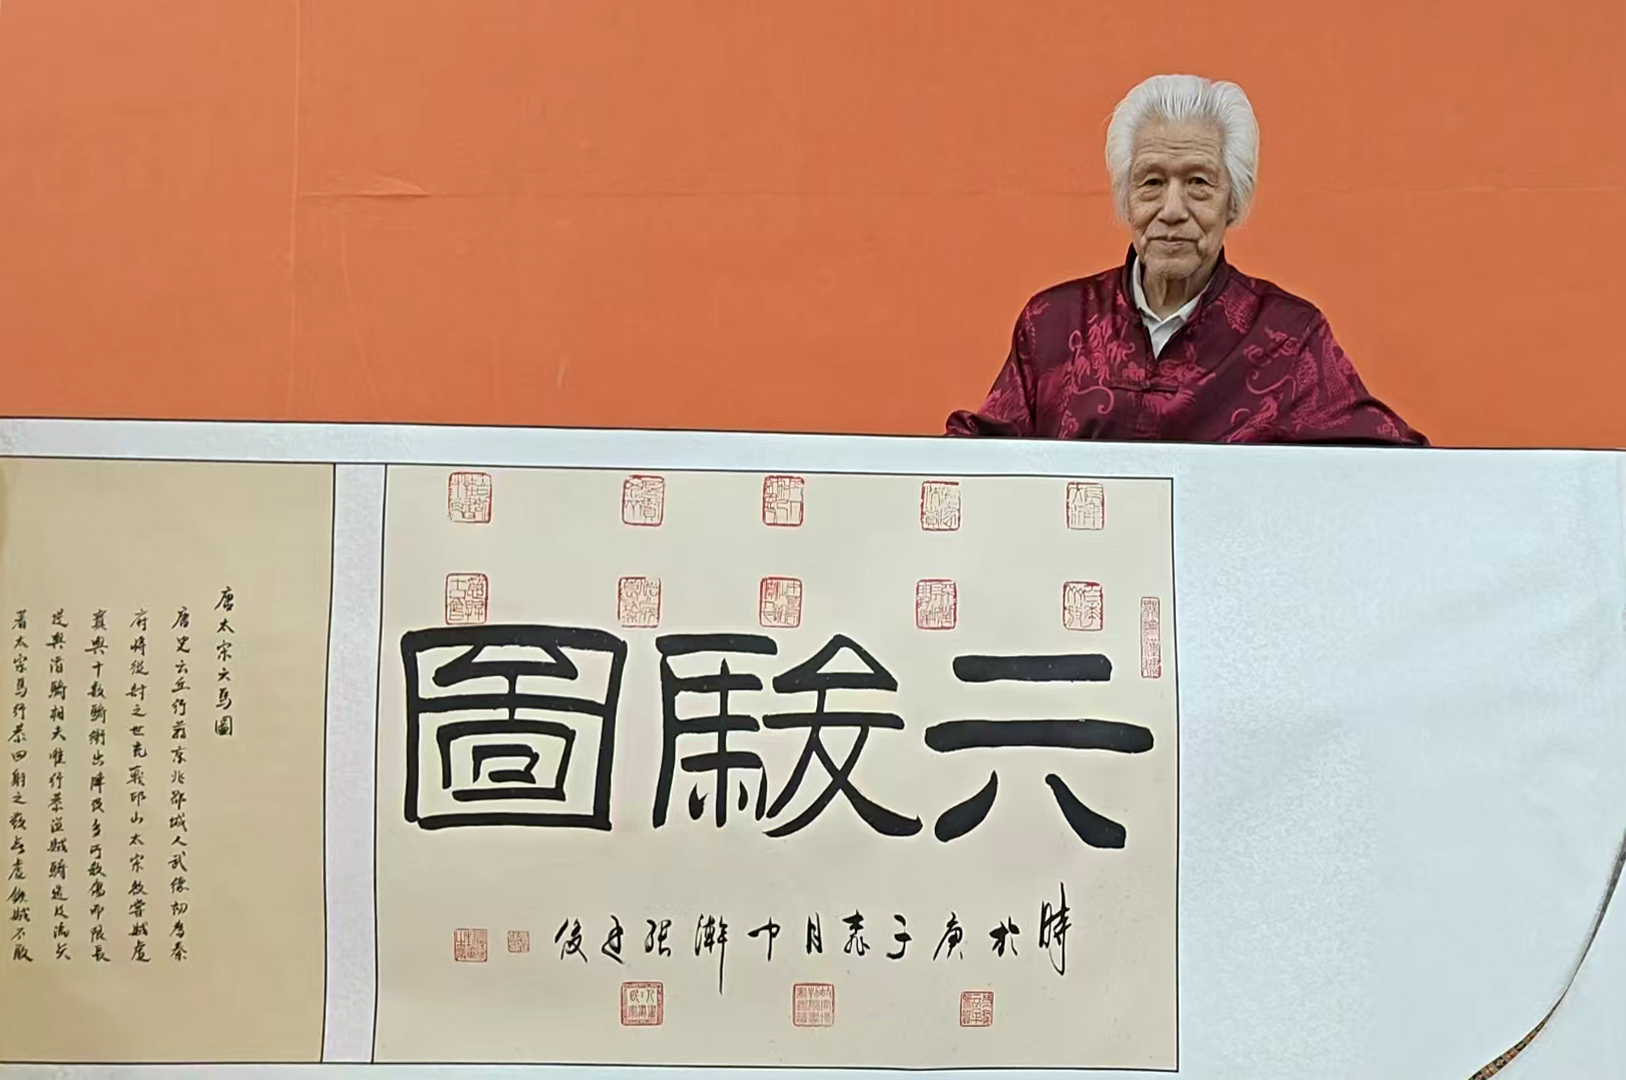 六駿圖
時於庚子春月中澣張廷俊
唐太宗六馬圖
唐史云丘行恭京兆郿城人武德初為秦
府將從討之世充戰邙山太宗欲嘗賊虛
實與十數騎衝出陣後多所殺傷而限長
堤與諸騎相失唯行恭從賊騎追及流矢
著太宗馬行恭回射之發無虛鏃賊不敢